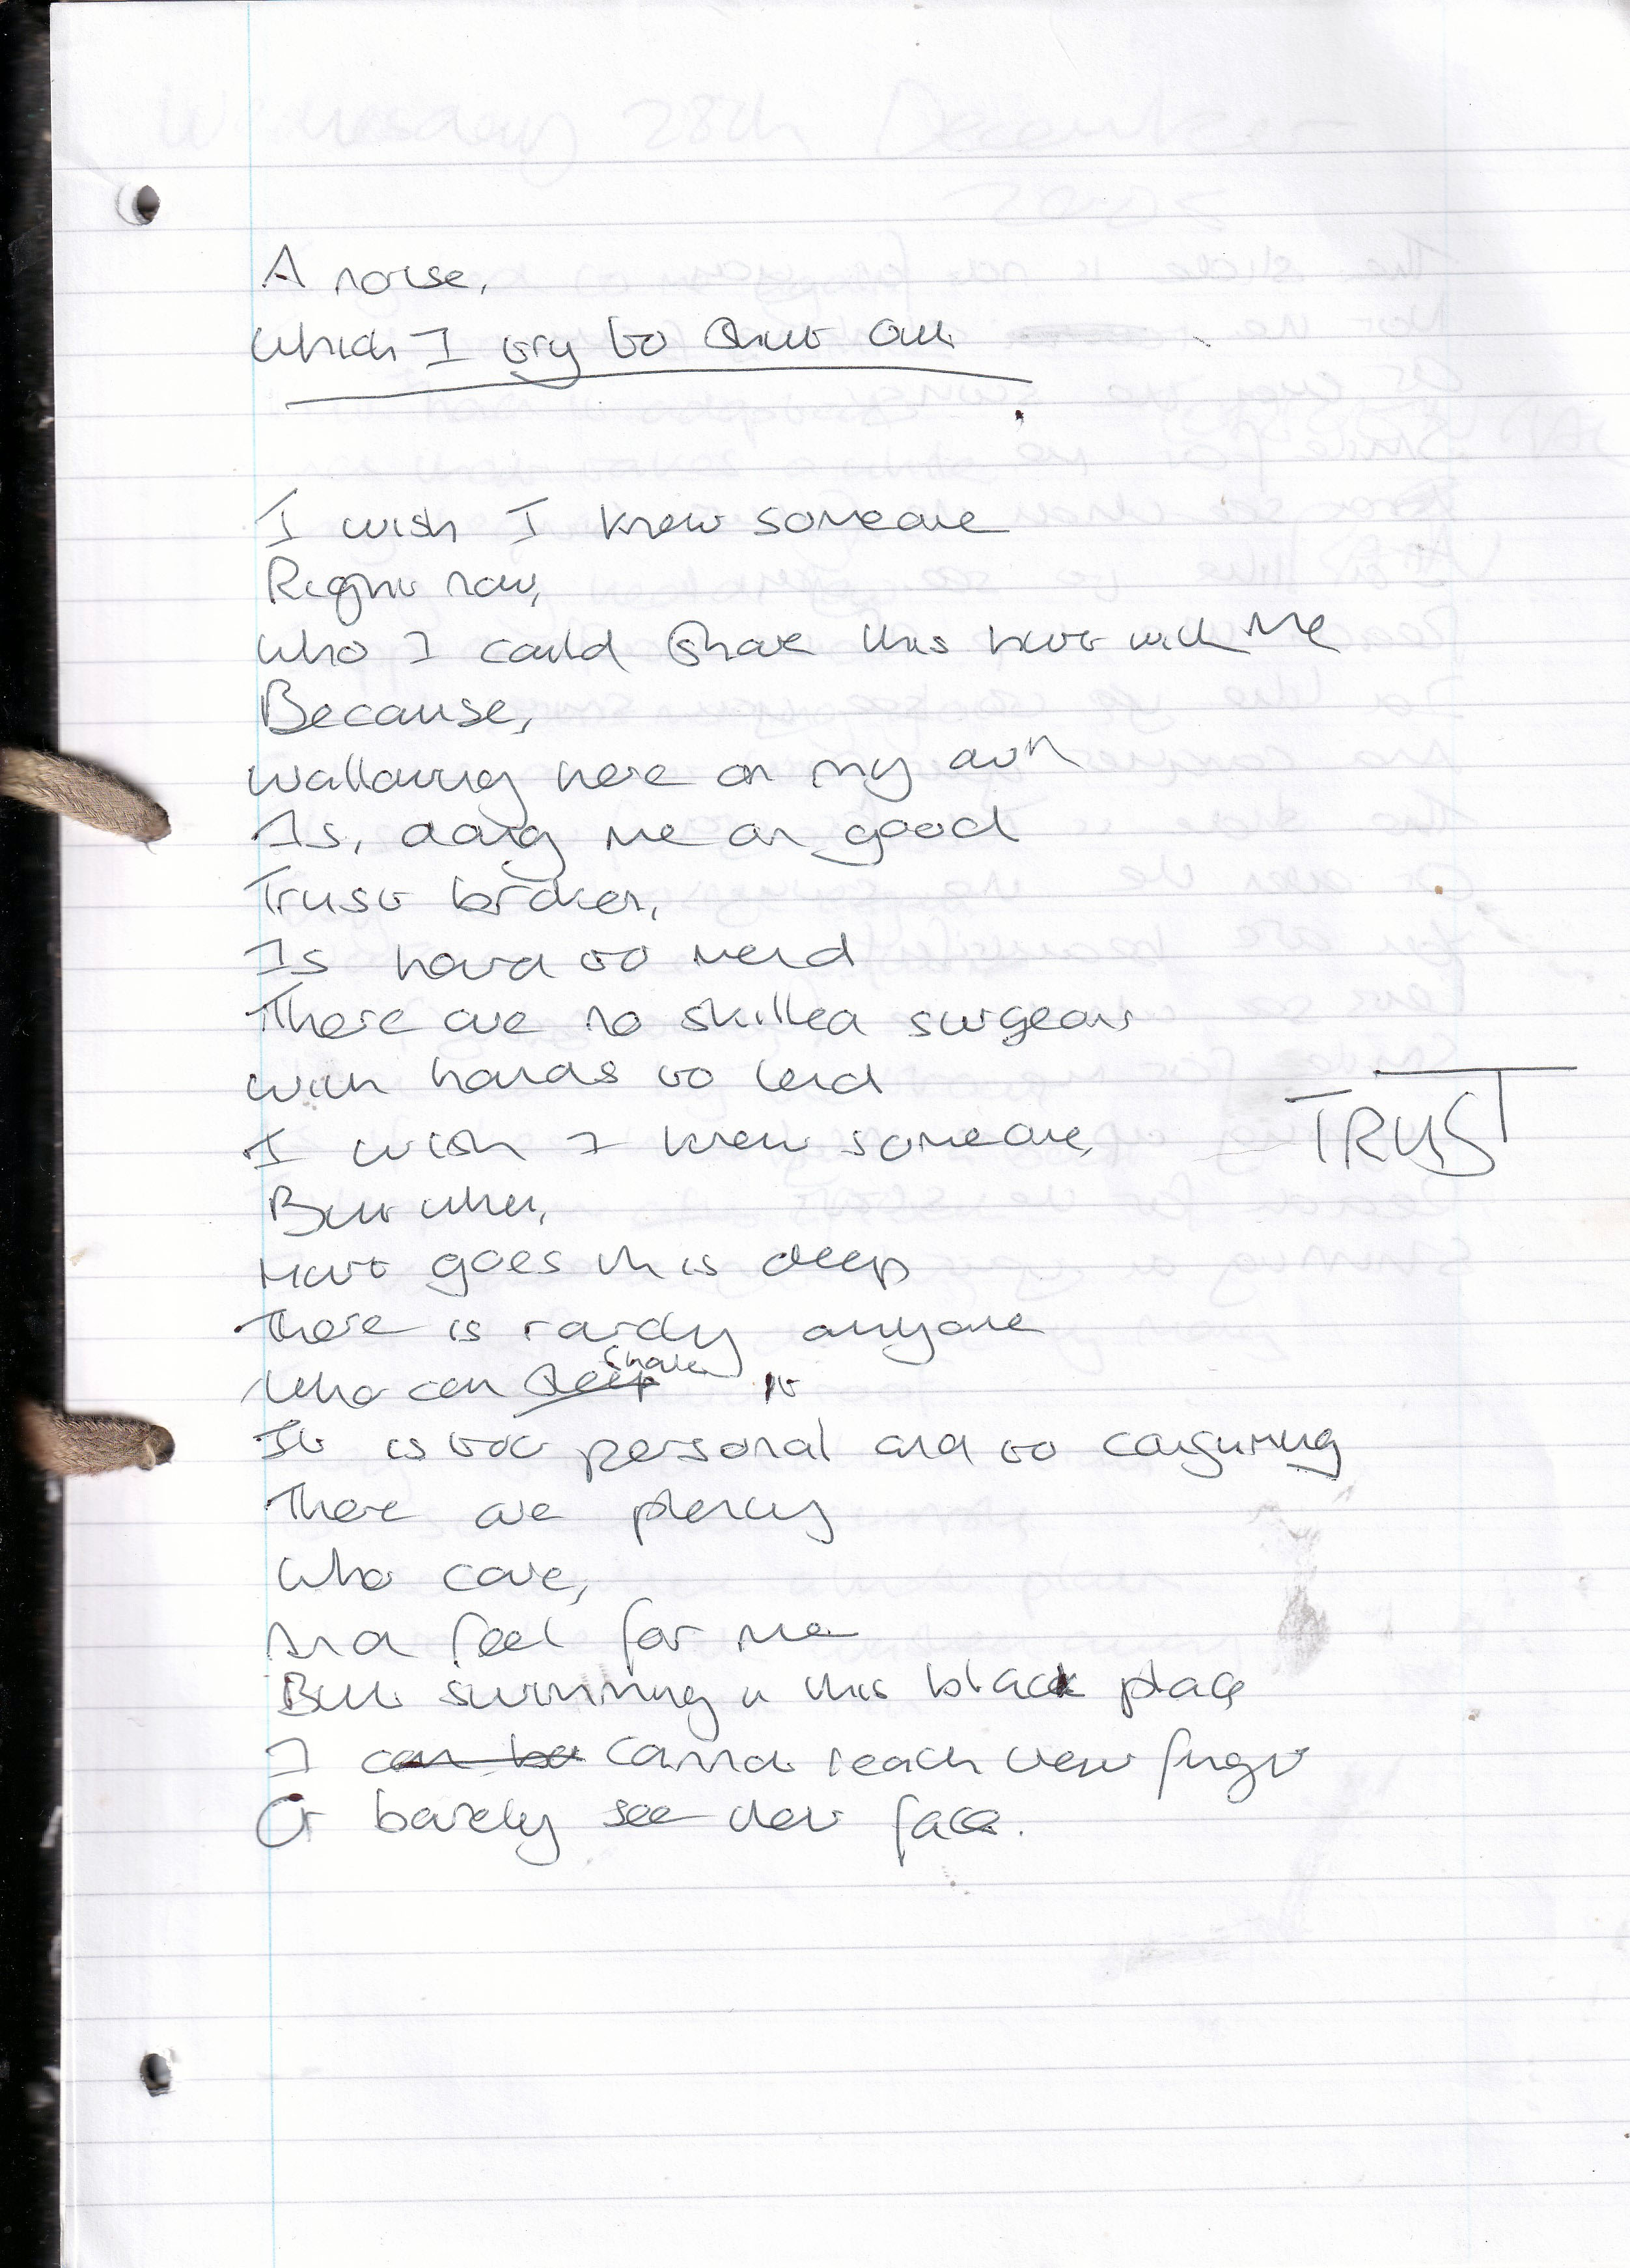 A noise,
Which I try to Shut Out.
I wish I knew someone
Right now,
Who I could Share this hurt with Me
Because,
Wallowing here on my own
Is, doing me on good
Trust broken,
Is hard to mend
There are no skilled surgeons
With hands to lend
I wish I knew someone,
TRUST
But when,
Hurt goes this deep
There is rarely anyone
Who can share it
It is too personal and to consuming
There are plenty
Who care,
And feel for me
But swimming in this black place
I can be cannot reach their fingers
Or barely see their face.